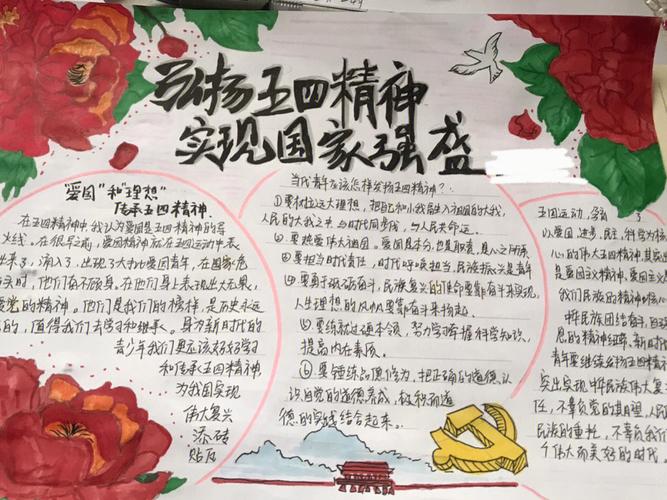 弘扬五四精神
实现国家强盛
"爱国"和"理想"
传承五四精神.
在五四精神中我认为爱国是五四精神的导
火线.在很早之前,爱国精神就在五四运动中表
出来了,涌入了、出现了大批爱国青年,在国家危
们是我们的榜样,是历史永远
的,值得我们去学习和继承。身为新时代的
青少年我们更应该好好学习
和传承五四精神
为我国实现
伟大复兴
添砖
贴瓦
当代青年应该怎样发扬五四精神?
①要树立远大理想,把自己和小我融入祖国的大我,
人民的大我之中.与时代同步伐,与人民共命运。
②要热爱伟大祖国。爱国是本分,也是职责,是人之所系
③要担当时代责任,时代呼唤担当,民族振兴是青年
④要勇于砥砺奋斗,民族复兴的使命要靠奋斗来实现,
人生理想的风帆要靠奋斗来扬起.
⑤要练就过硬本领,努力学习掌握科学知识,
提高内在素质。
⑥要锤炼品德修为,把正确的道德认
识自觉的道德养成,积极的道
德的实践结合起来。
五四运动,孕育了
以爱国,进步,民主,科学为核
心的伟大五四精神其
是爱国主义精神,爱国主
我们民族的精神核
中华民族团结奋斗的
息的精神纽带.新时代
青年要继续发扬五四精神
实出实现中华民族伟大复
任,不辜负党的期望,人民
民族的重托,不辜负我们
个伟大而美好的时代。